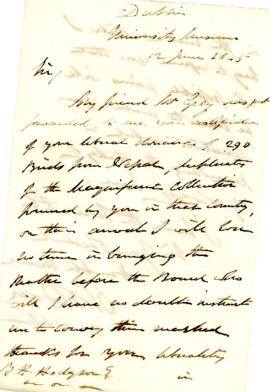 Dublin
University Museum
12 June 1845
Sir,
My friend Mr Gray has just
forwarded to me your notification
of your liberal donation of 290
Birds from Nepal, duplicates
of the Magnificent Collection
formed by you in that country,
on their arrival I will lose
no time in bringing the
matter before the Board who
will I have no doubt instruct
me to convey their marked
thanks for your liberality
B H Hodgson E
in